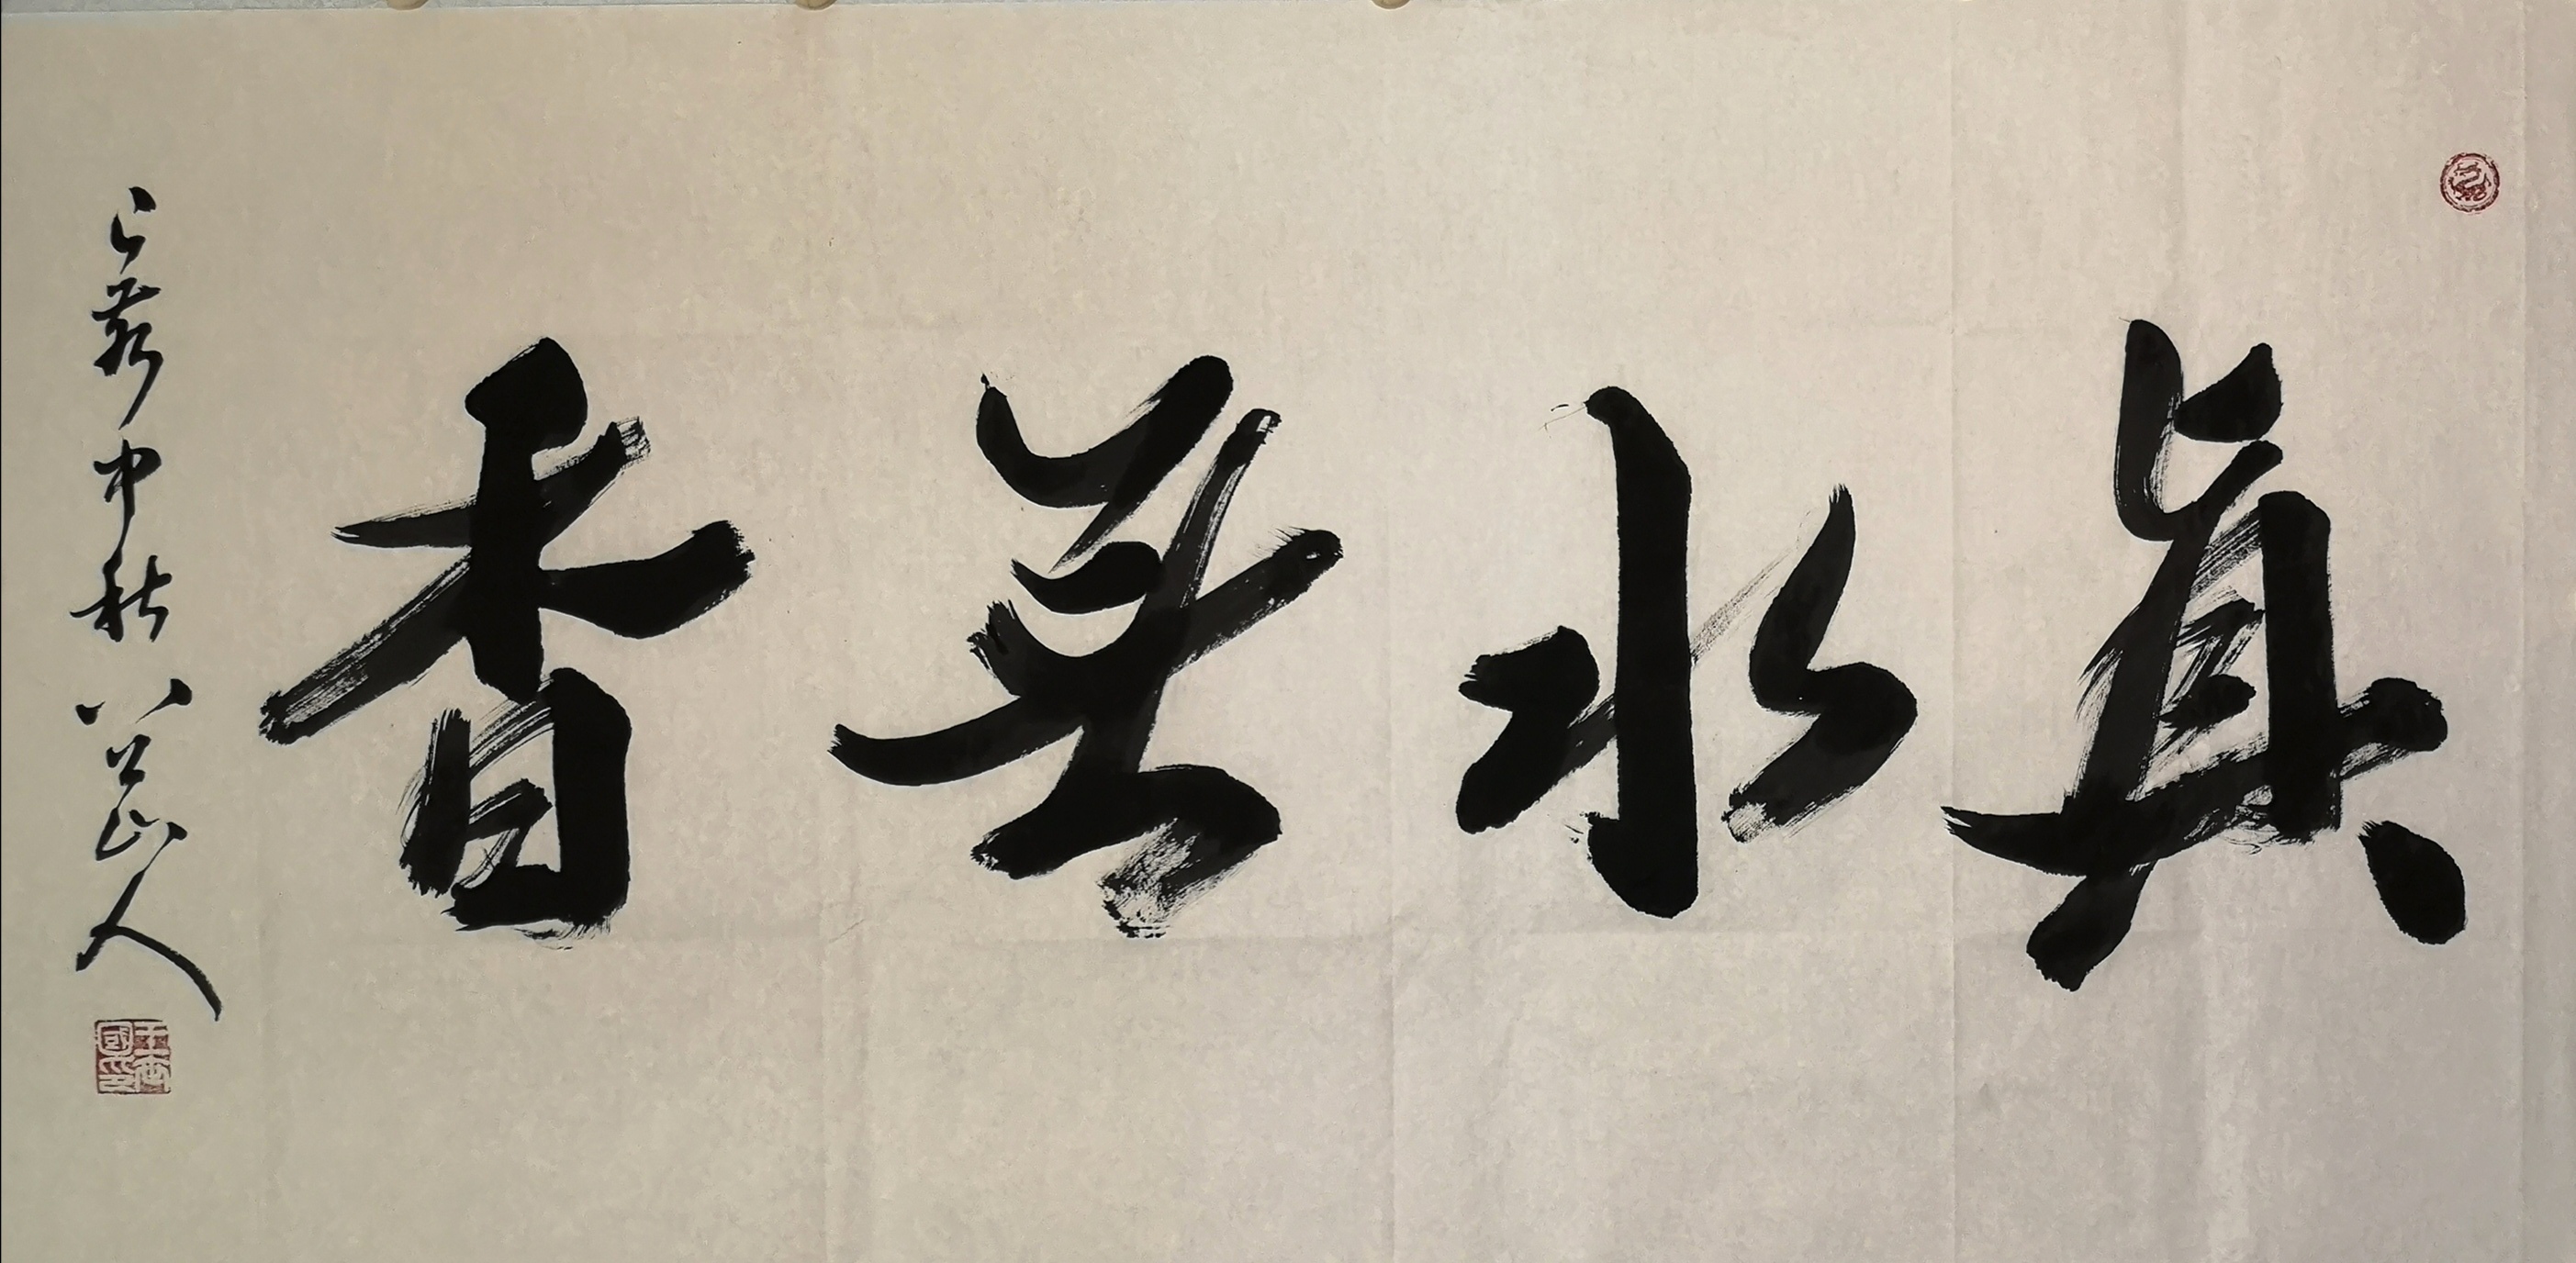 真水無香
己亥中秋 八公山人